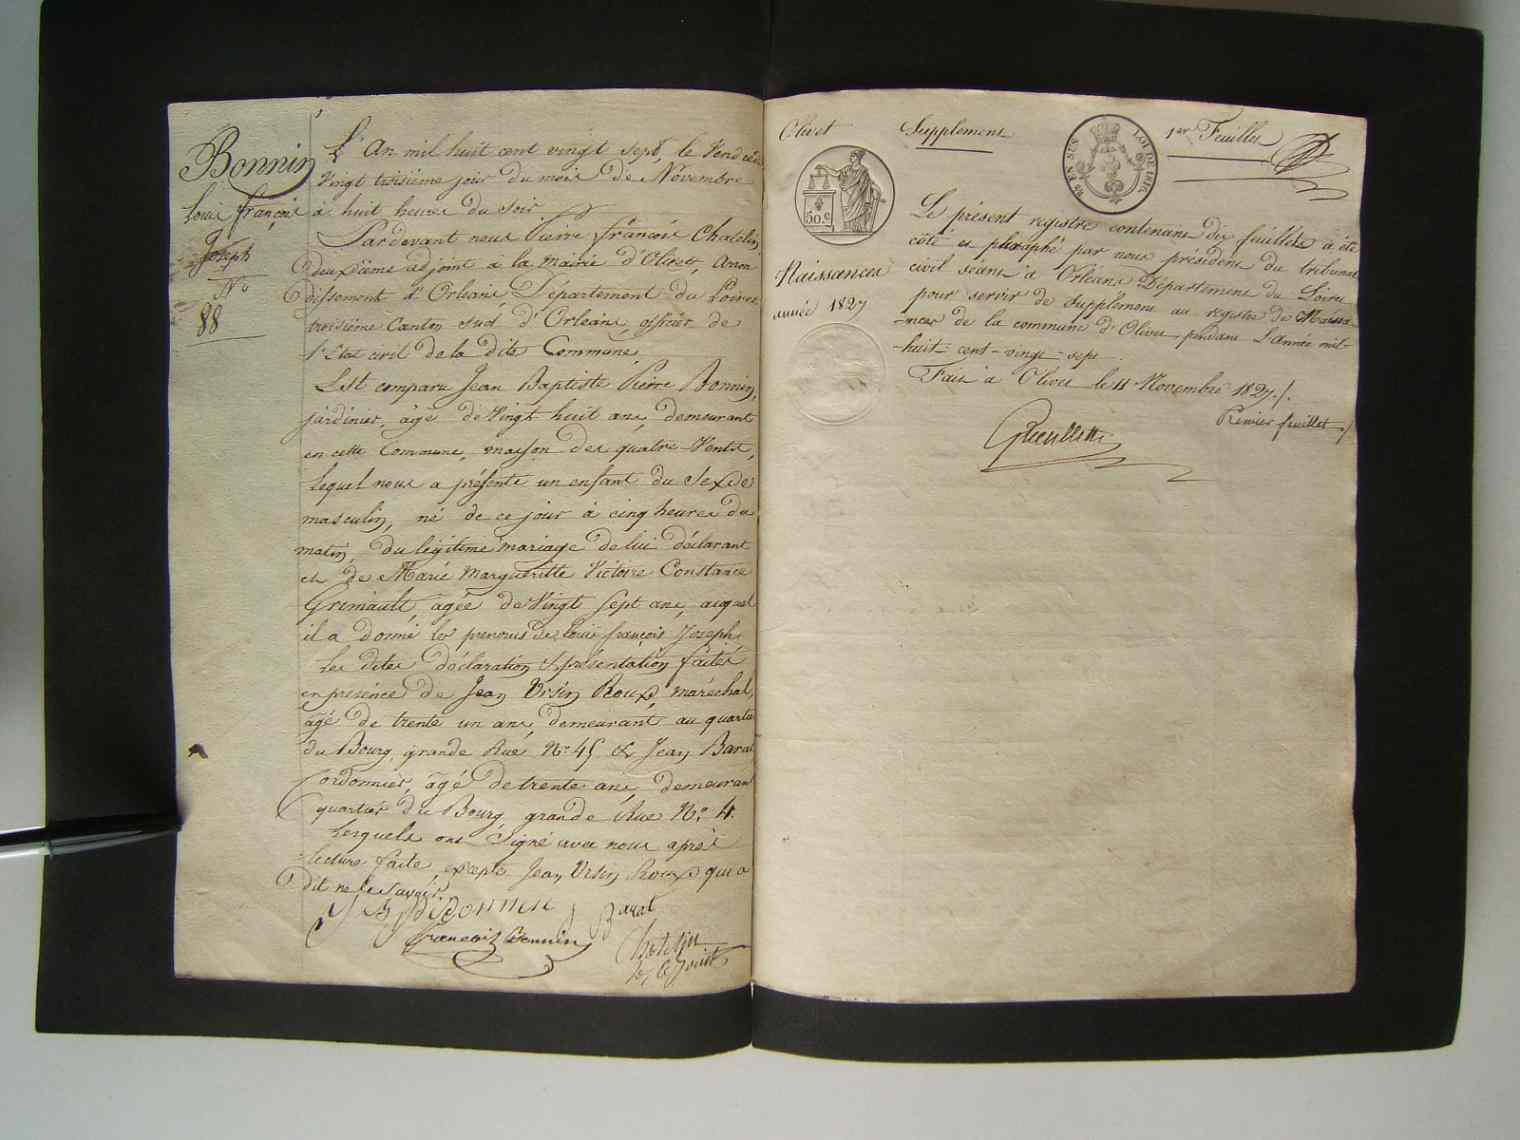 Bonnin
Louis françois
Joseph
N°
88
L'An mil huit cent vingt sept, le Vendredi
Vingt troisième jour du mois de Novembre
à huit heures du soir
Pardevant nous Pierre françois Chatelin
deuxième adjoint à la mairie d'Olivet, Arron
dissement d'Orléans Département du Loiret
troisième Canton sud d'Orléans, officier de
l'Etat civil de la dite Commune
Est comparu Jean Baptiste Pierre Bonnin,
jardinier, âgé de Vingt huit ans, demeurant
en cette Commune, maison des quatre Vents,
lequel nous a présenté un enfant du Sexe
masculin, né de ce jour à cinq heures du
matin, du légitime mariage de lui déclarant
et de Marie Margueritte Victoire Constance
Grimault, agée de Vingt Sept ans, auquel
il a donné les prenoms de Louis françois Joseph
Les dites déclaration & présentation faites
en présence de Jean Ursin Roux maréchal,
âgé de trente un ans, demeurant au quartier
du Bourg, grande Rue N° 45 & Jean Barat
Cordonnier, âgé de trente ans, demeurant
quartier du Bourg, grande Rue N° 4.
Lesquels ont Signé avec nous après
lecture faite, excepté Jean Ursin Roux qui a
dit ne le savoir
Bonnin Barat
francois Bonnin Chatelin
Olivet Supplement 1er Feuillet
50.c
Naissances
année 1827
Le présent registre contenant dix feuillets a été
côté et paraphé par nous président du tribunal
civil séant à Orléans Département du Loiret
pour servir de Supplément au registre de Naissa-
-nces de la commune d'Olivet pendant l'Année mil-
-huit-cent-vingt-sept.
Fait à Olivet le 11 Novembre 1827./.
Premier feuillet ./